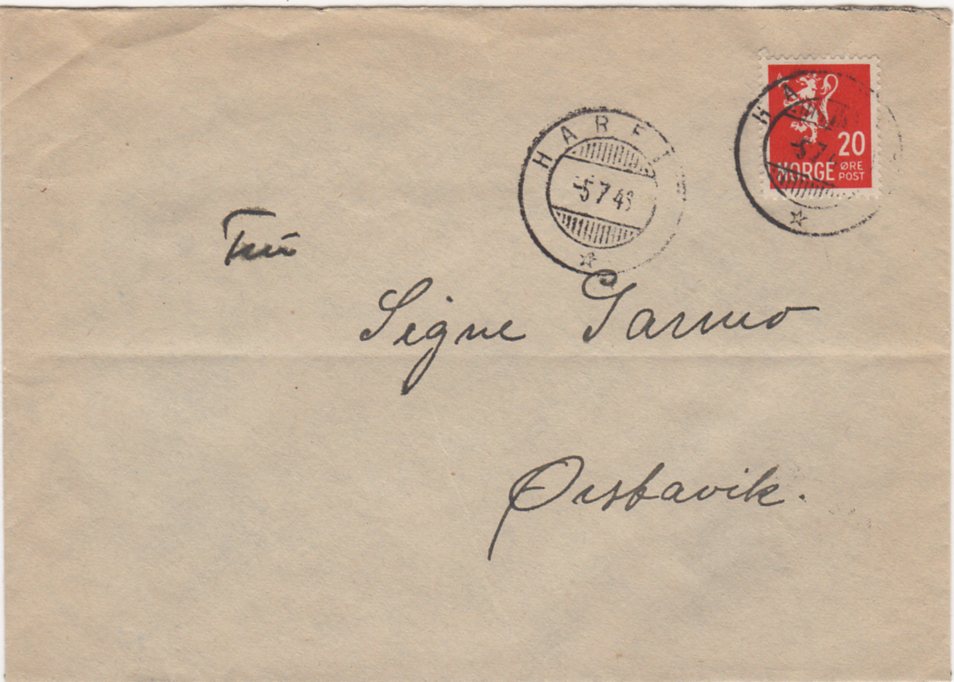 HAREI
-5.7.48
HA
-5.7.
20
NORGE ØRE
POST
Fru
Signe Garmo
Ørsbavik.